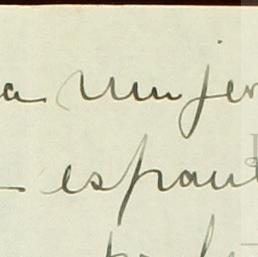 a mujer
espant